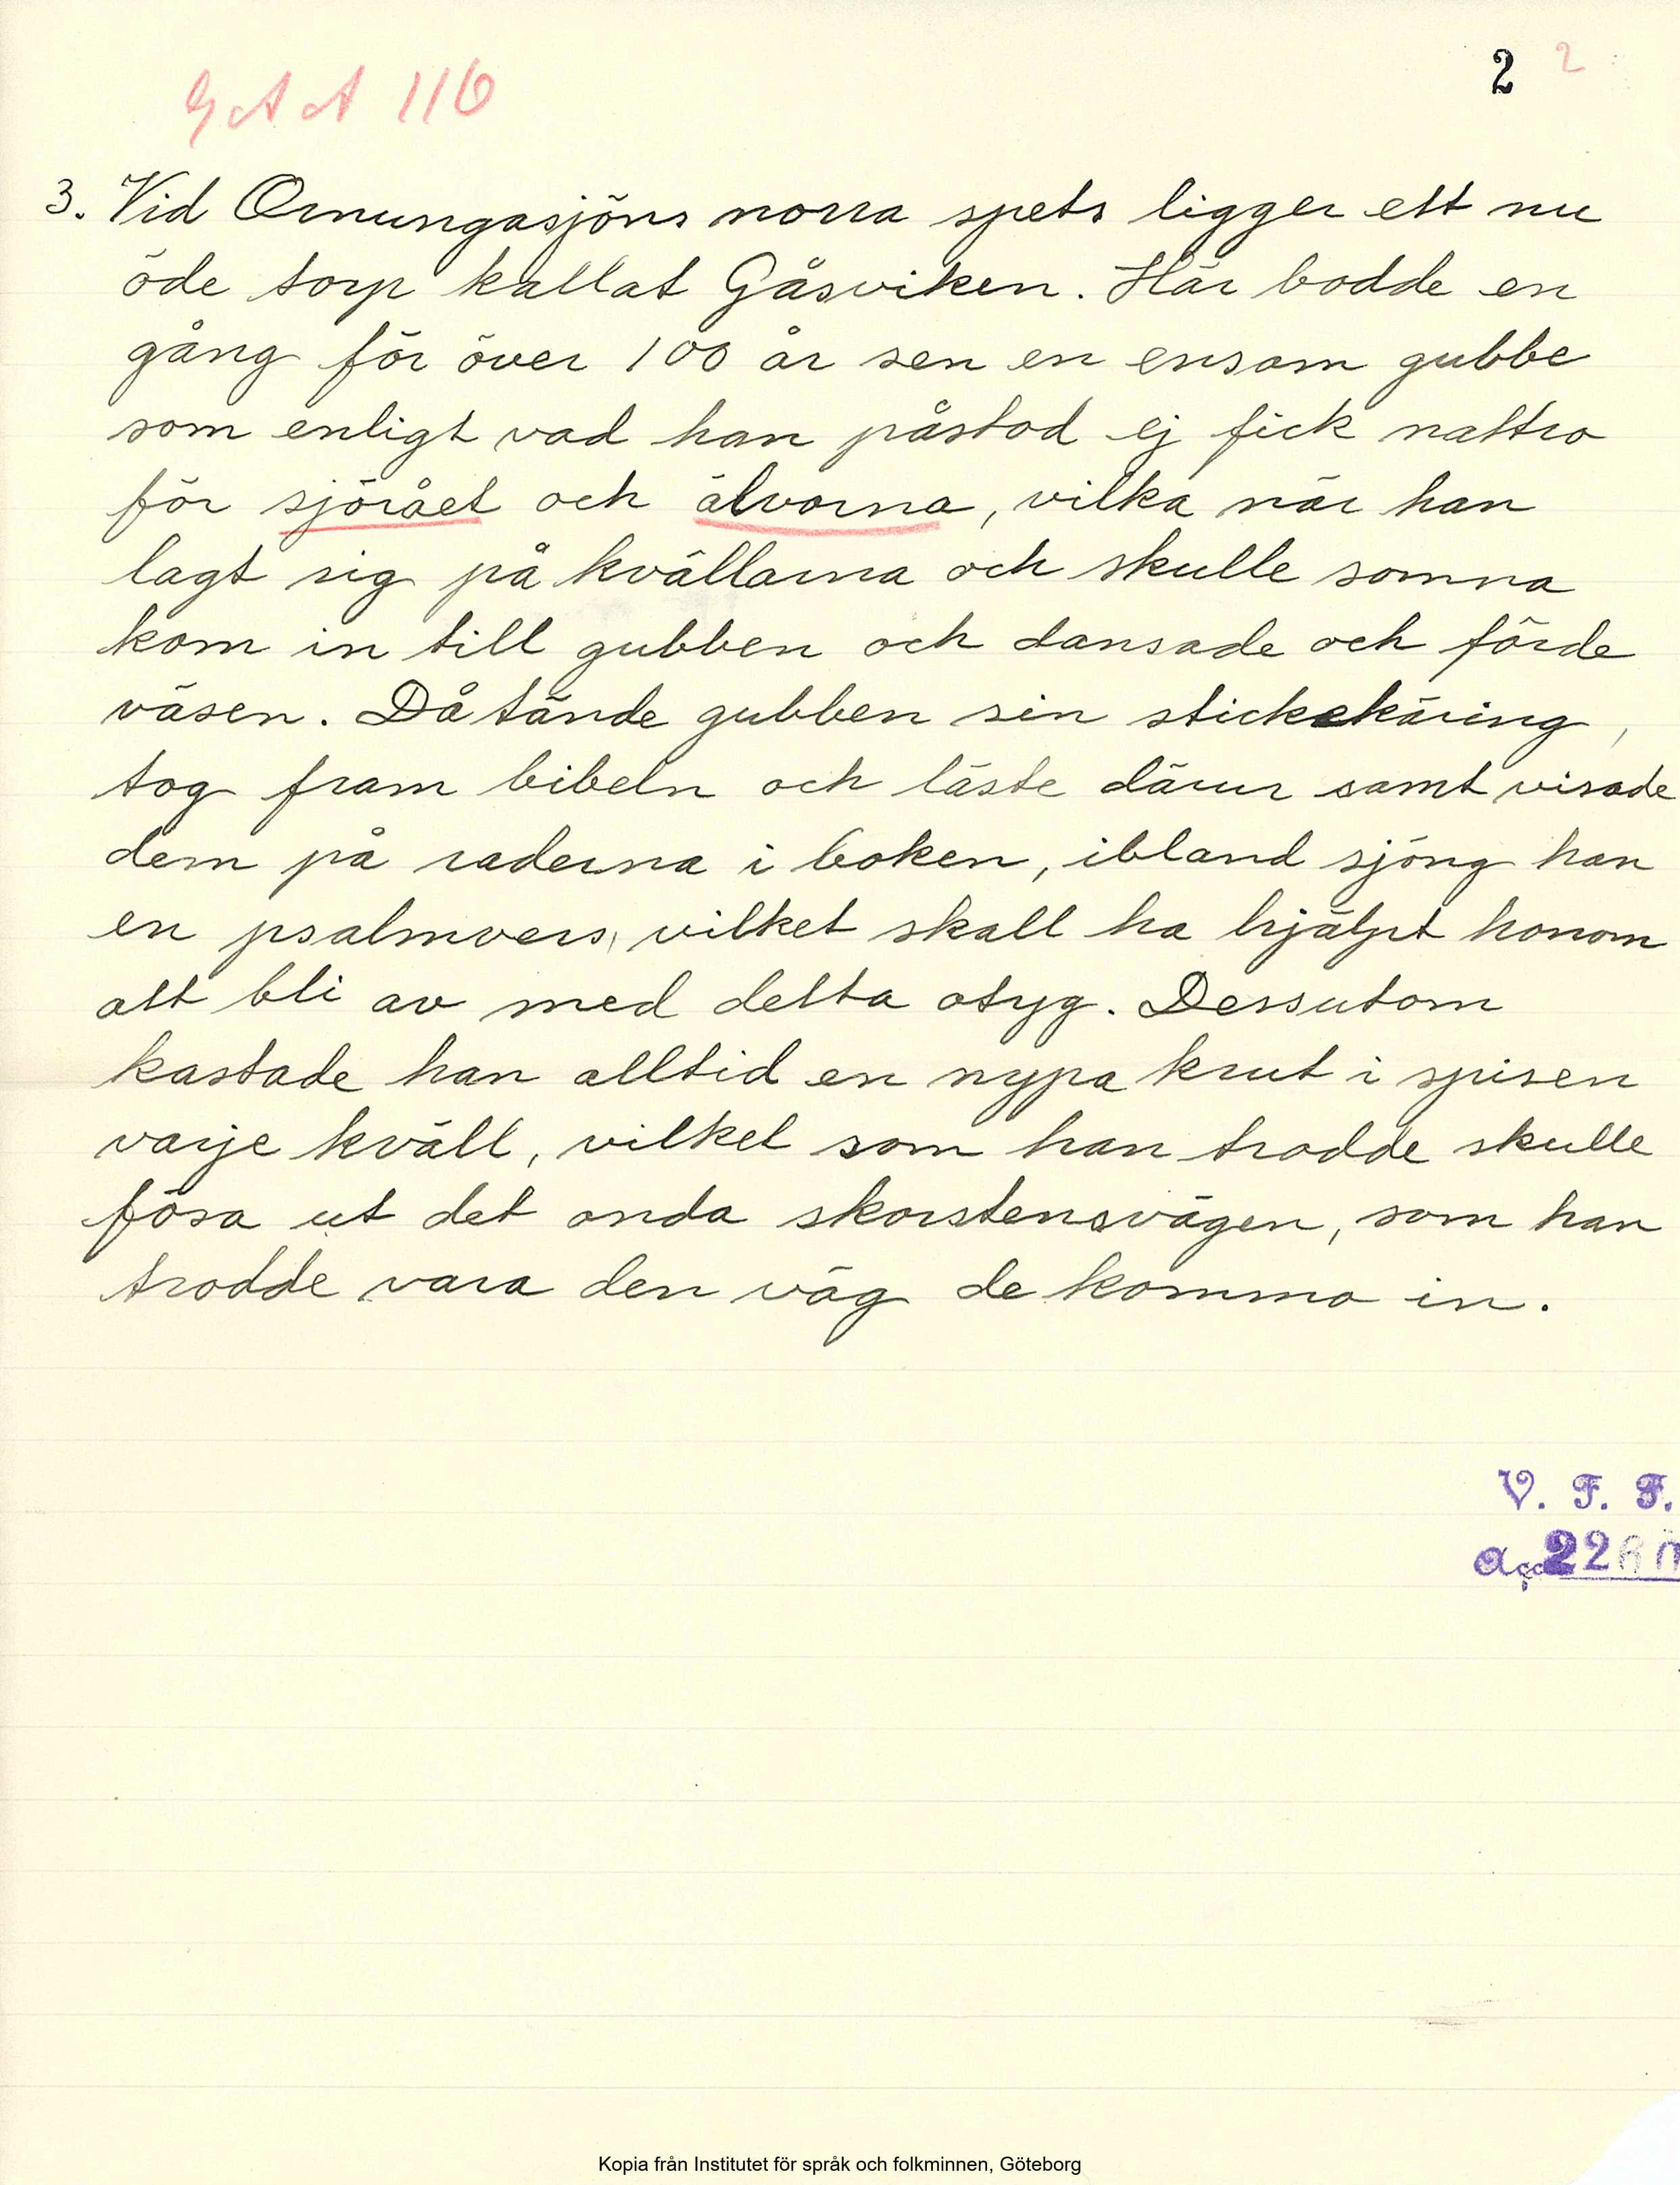 G A A 116
2 2
3. Vid Ornungasjöns norra spets ligger ett nu
öde torp kallat Gåsviken. Här bodde en
gång för över 100 år sen en ensam gubbe
som enligt vad han påstod ej fick nattro
för sjörået och älvorna, vilka när han
lagt sig på kvällarna och skulle somna
kom in till gubben och dansade och förde
väsen. Då tände gubben sin stickekäring,
tog fram bibeln och läste därur samt visade
dem på raderna i boken, ibland sjöng han
en psalmvers, vilket skall ha hjälpt honom
att bli av med detta otyg. Dessutom
kastade han alltid en nypa krut i spisen
varje kväll, vilket som han trodde skulle
fösa ut det onda skorstensvägen, som han
trodde vara den väg de komma in.
V. F. F.
acc 22
Kopia från Institutet för språk och folkminnen, Göteborg